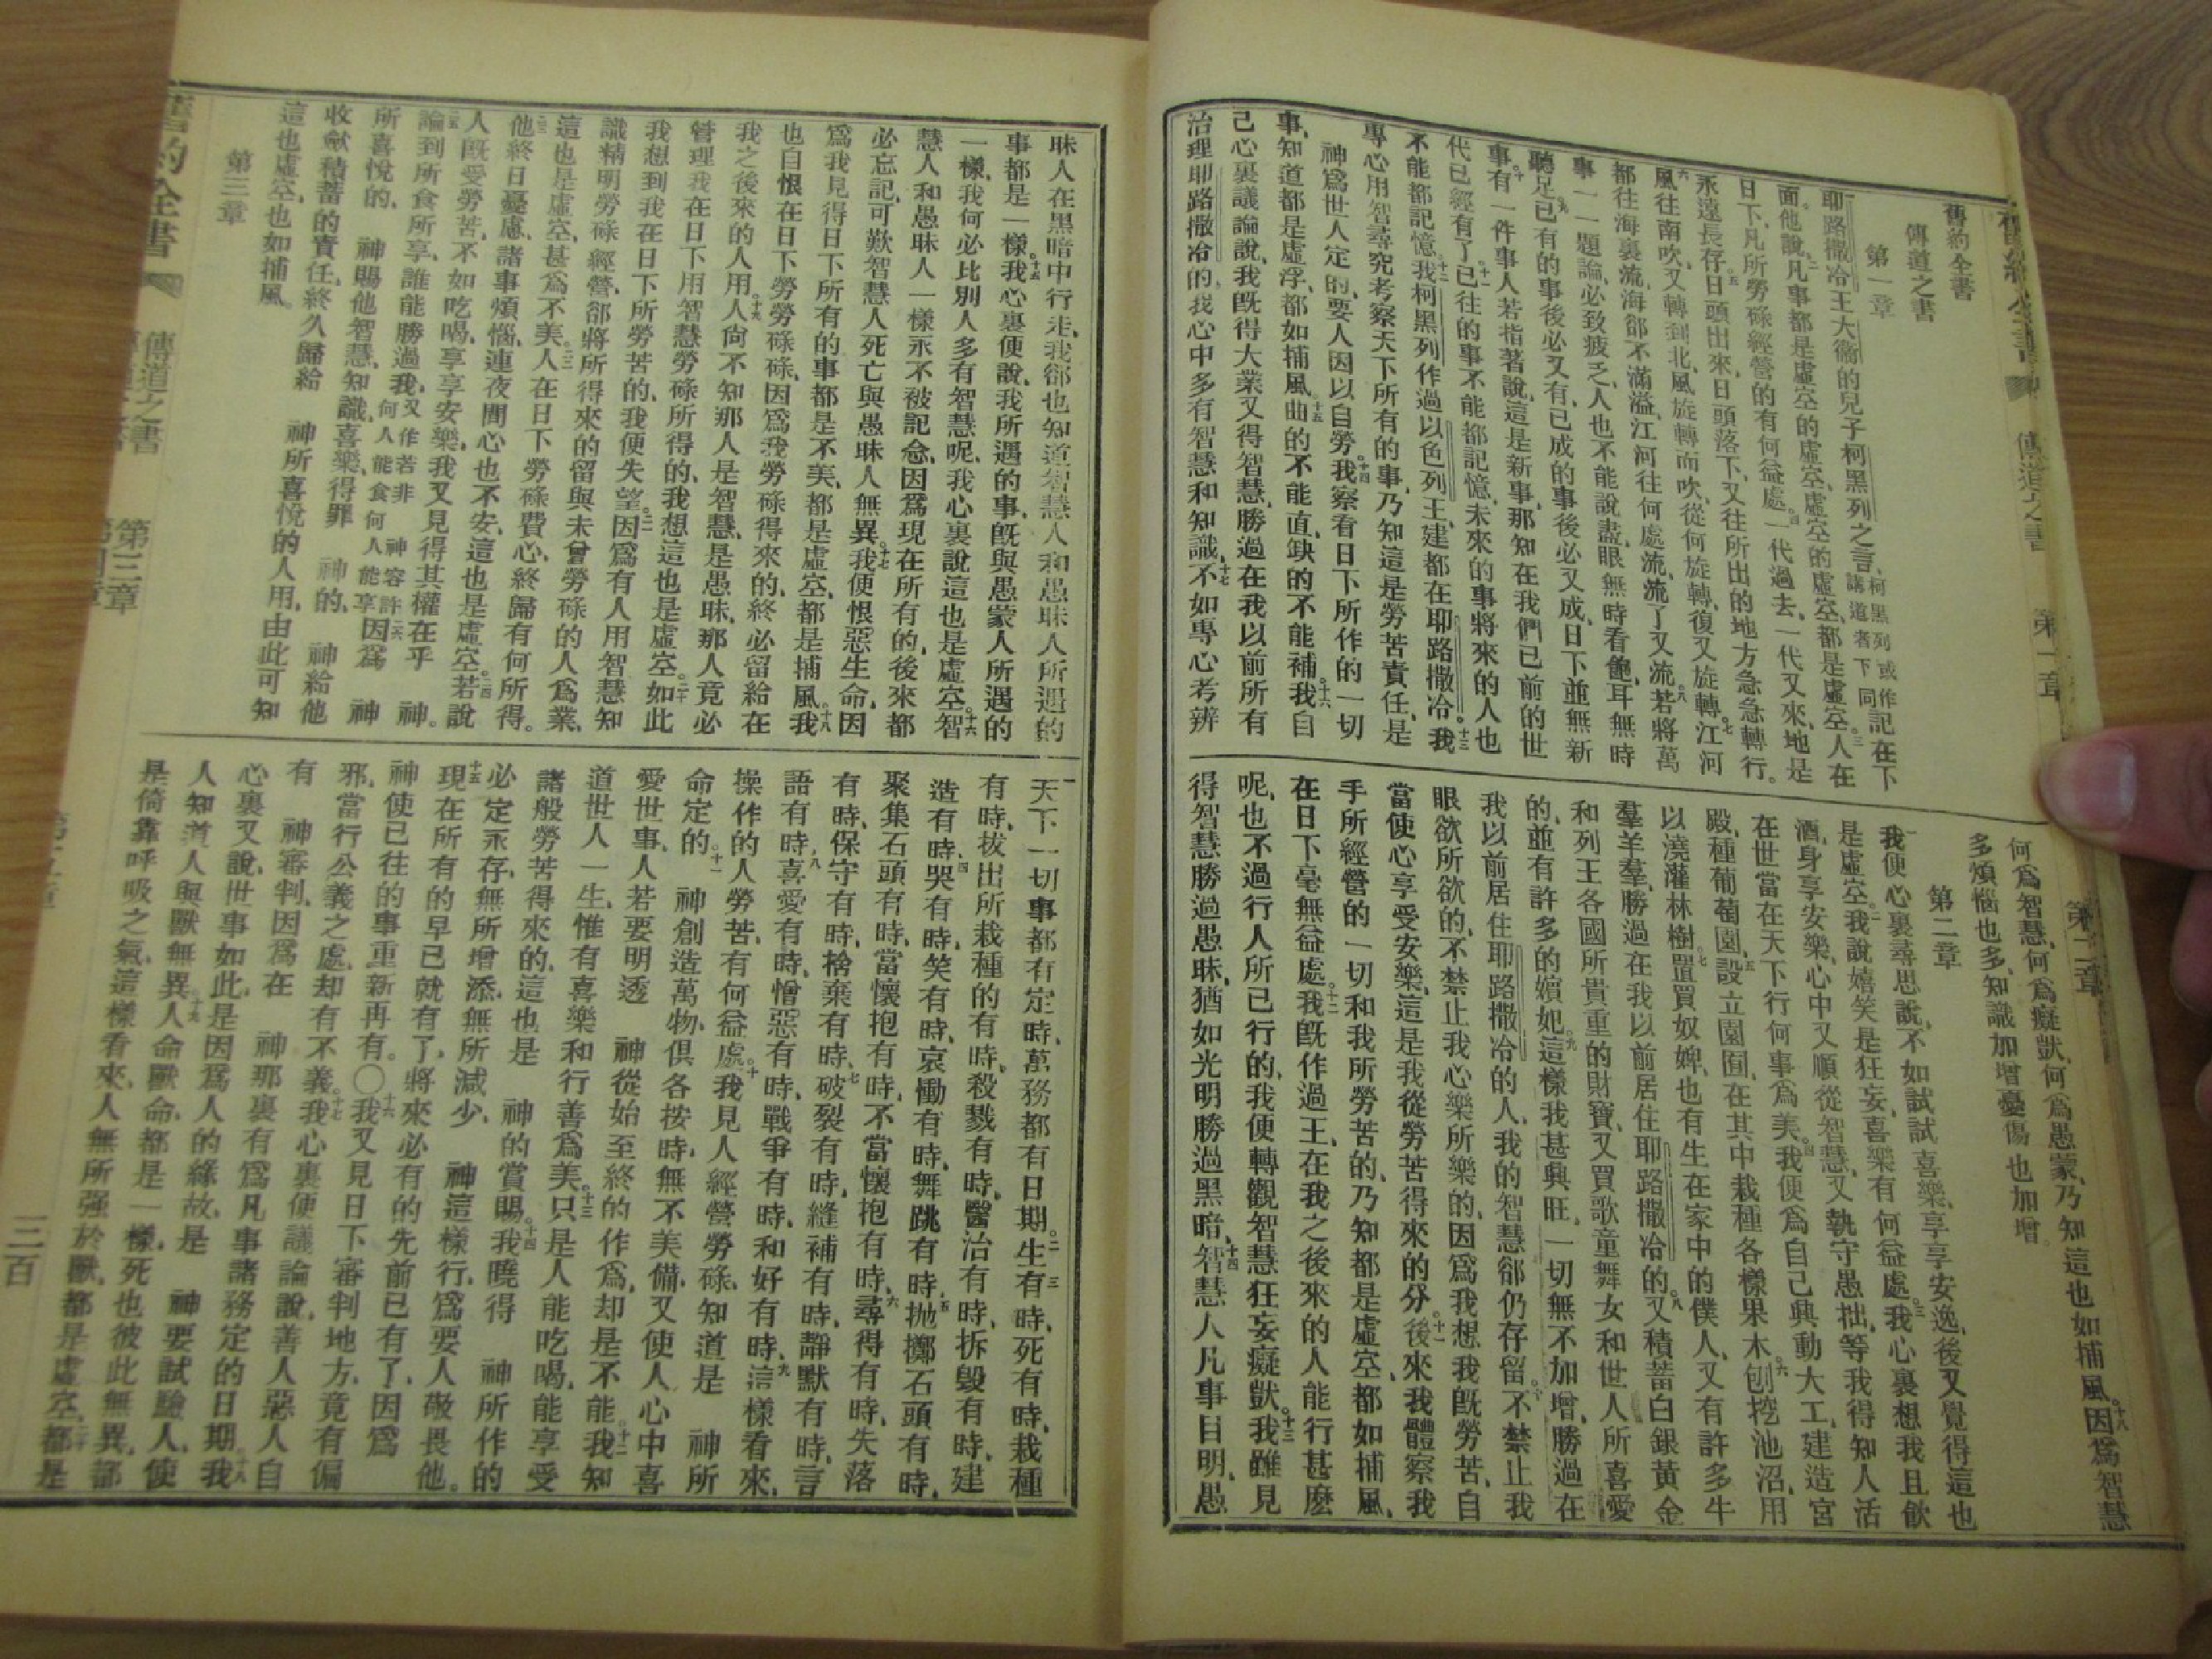 舊約全書
傳道之書
第一章
耶路撒冷王大衞的兒子柯黑列之言、柯黑列或作講道者下同記在下
面。二他說凡事都是虛空的虛空、虛空的虛空、都是虛空。三人在
日下、凡所勞碌經營的有何益處。四一代過去、一代又來、地是
永遠長存。五日頭出來、日頭落下、又往所出的地方急急轉行。
六風往南吹、又轉到北、風旋轉而吹、從何旋轉、復又旋轉。七江河
都往海裏流、海卻不滿溢、江河往何處流、流了又流。八若將萬
事一一題論、必致疲乏、人也不能說盡、眼無時看飽、耳無時
聽足。九已有的事後必又有、已成的事後必又成、日下並無新
事。十有一件事人若指著說、這是新事、那知在我們已前的世
代已經有了。十一已往的事不能都記憶、未來的事將來的人也
不能都記憶。十二我柯黑列作過以色列王、建都在耶路撒冷。十三我
專心用智尋究考察天下所有的事、乃知這是勞苦責任、是
神爲世人定的、要人因以自勞。十四我察看日下所作的一切
事、知道都是虛浮、都如捕風。十五曲的不能直、缺的不能補。十六我自
己心裏議論說、我旣得大業又得智慧、勝過在我以前所有
治理耶路撒冷的、我心中多有智慧和知識。十七不如專心考辨
何爲智慧、何爲癡獃、何爲愚蒙、乃知這也如捕風。十八因爲智慧
多煩惱也多、知識加增憂傷也加增。
第二章
一我便心裏尋思說、不如試試喜樂、享享安逸、後又覺得這也
是虛空。二我說嬉笑是狂妄、喜樂有何益處。三我心裏想我且飲
酒、身享安樂、心中又順從智慧、又執守愚拙、等我得知人活
在世當在天下行何事爲美。四我便爲自己興動大工、建造宮
殿、種葡萄園、五設立園囿、在其中栽種各樣果木。六刨挖池沼、用
以澆灌林樹。七置買奴婢、也有生在家中的僕人、又有許多牛
羣羊羣、勝過在我以前居住耶路撒冷的。八又積蓄白銀黃金
和列王各國所貴重的財寶、又買歌童舞女和世人所喜愛
的、並有許多的嬪妃。九這樣我甚興旺、一切無不加增、勝過在
我以前居住耶路撒冷的人、我的智慧卻仍存留。十不禁止我
眼欲所欲的、不禁止我心樂所樂的、因爲我想我旣勞苦、自
當使心享受安樂、這是我從勞苦得來的分。十一後來我體察我
手所經營的一切和我所勞苦的、乃知都是虛空、都如捕風、
在日下毫無益處。十二我旣作過王、在我之後來的人能行甚麽
呢、也不過行人所已行的、我便轉觀智慧狂妄癡獃。十三我雖見
得智慧勝過愚昧、猶如光明勝過黑暗、十四智慧人凡事目明、愚
傳道之書
第一章
第二章
昧人在黑暗中行走、我卻也知道智慧人和愚昧人所遇的
事都是一樣。十五我心裏便說、我所遇的事、旣與愚蒙人所遇的
一樣、我何必比別人多有智慧呢、我心裏說這也是虛空。十六智
慧人和愚昧人一樣永不被記念、因爲現在所有的、後來都
必忘記、可歎智慧人死亡與愚昧人無異。十七我便恨惡生命、因
爲我見得日下所有的事都是不美、都是虛空、都是捕風。十八我
也自恨在日下勞勞碌碌、因爲我勞碌得來的、終必留給在
我之後來的人用。十九人尙不知那人是智慧、是愚昧、那人竟必
管理我在日下用智慧勞碌所得的、我想這也是虛空。二十如此
我想到我在日下所勞苦的、我便失望。二一因爲有人用智慧知
識精明勞碌經營、卻將所得來的留與未曾勞碌的人爲業、
這也是虛空、甚爲不美。二二人在日下勞碌費心、終歸有何所得。
二三他終日憂慮、諸事煩惱、連夜間心也不安、這也是虛空。二四若說
人旣受勞苦、不如吃喝、享享安樂、我又見得其權在乎　神。
二五論到所食所享、誰能勝過我、又作若非　神容許何人能食何人能享二六因爲　神
所喜悅的、　神賜他智慧、知識、喜樂、得罪　神的、　神給他
收斂積蓄的責任、終久歸給　神所喜悅的人用、由此可知
這也虛空、也如捕風。
第三章
一天下一切事都有定時、萬務都有日期。二生有時、死有時、栽種
有時、拔出所栽種的有時、三殺戮有時、醫治有時、拆毀有時、建
造有時、四哭有時、笑有時、哀慟有時、舞跳有時、五拋擲石頭有時、
聚集石頭有時、當懷抱有時、不當懷抱有時、六尋得有時、失落
有時、保守有時、捨棄有時、七破裂有時、縫補有時、靜默有時、言
語有時、八喜愛有時、憎惡有時、戰爭有時、和好有時、九這樣看來、
操作的人勞苦、有何益處。十我見人經營勞碌、知道是　神所
命定的。十一　神創造萬物、俱各按時、無不美備、又使人心中喜
愛世事、人若要明透　神從始至終的作爲、却是不能。十二我知
道世人一生、惟有喜樂和行善爲美。十三只是人能吃喝、能享受
諸般勞苦得來的、這也是　神的賞賜。十四我曉得　神所作的
必定永存、無所增添、無所減少、　神這樣行、爲要人敬畏他。
十五現在所有的早已就有了、將來必有的先前已有了、因爲
神使已往的事重新再有。○十六我又見日下審判地方、竟有偏
邪、當行公義之處、却有不義。十七我心裏便議論說、善人惡人自
有　神審判、因爲在　神那裏有爲凡事諸務定的日期。十八我
心裏又說、世事如此、是因爲人的緣故、是　神要試驗人、使
人知道人與獸無異。十九人命獸命、都是一樣、死也彼此無異、都
是倚靠呼吸之氣、這樣看來、人無所强於獸、都是虛空。二十都是
舊約全書
傳道之書
第三章
三百